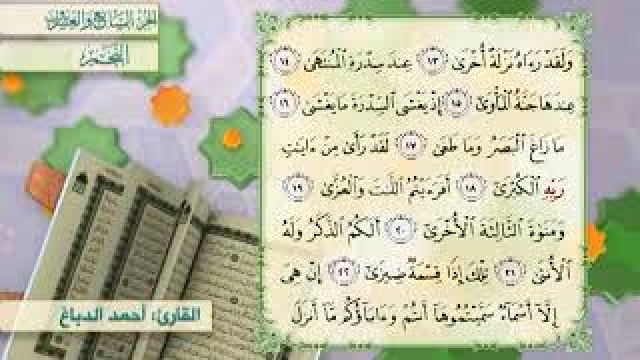 الجزء السابع والعشرون
النجم
وَلَقَدْ رَءَاهُ نَزْلَةً أُخْرَىٰ ١٣ عِندَ سِدْرَةِ ٱلْمُنتَهَىٰ ١٤
عِندَهَا جَنَّةُ ٱلْمَأْوَىٰ ١٥ إِذْ يَغْشَى ٱلسِّدْرَةَ مَا يَغْشَىٰ ١٦
مَا زَاغَ ٱلْبَصَرُ وَمَا طَغَىٰ ١٧ لَقَدْ رَأَىٰ مِنْ ءَايَٰتِ
رَبِّهِ ٱلْكُبْرَىٰ ١٨ أَفَرَءَيْتُمُ ٱللَّٰتَ وَٱلْعُزَّىٰ ١٩
وَمَنَوٰةَ ٱلثَّالِثَةَ ٱلْأُخْرَىٰ ٢٠ أَلَكُمُ ٱلذَّكَرُ وَلَهُ
ٱلْأُنثَىٰ ٢١ تِلْكَ إِذًا قِسْمَةٌ ضِيزَىٰ ٢٢ إِنْ هِىَ
إِلَّآ أَسْمَآءٌ سَمَّيْتُمُوهَآ أَنتُمْ وَءَابَآؤُكُم مَّآ أَنزَلَ
القارئ: أحمد الدباغ